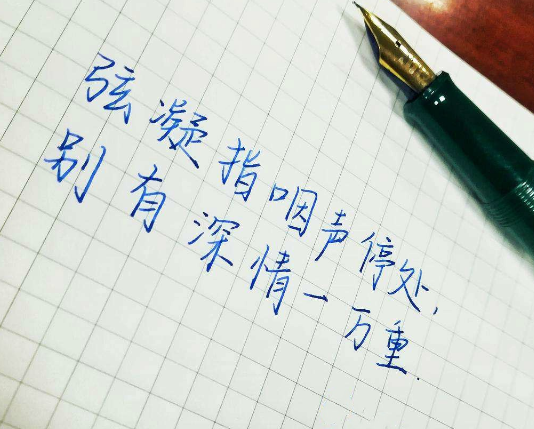 弦凝指咽声停处，
别有深情一万重.